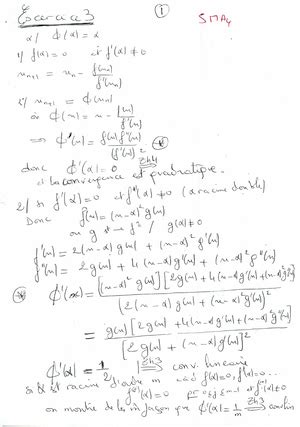 i
Exercice 3
SMA4
α/ Φ(α) = α
1/ f(α) = 0 et f'(α) ≠ 0
u_{n+1} = u_n - f(u_n)/f'(u_n)
u_{n+1} = Φ(u_n)
où Φ(x) = x - f(x)/f'(x)
⟹ Φ'(x) = f(x) f''(x)/(f'(x))²
donc Φ'(α) = 0
et la convergence est quadratique.
2/ si f'(α) = 0 et f''(α) ≠ 0 (α racine double)
Donc f(x) = (x-α)² g(x)
où g / g(α) ≠ 0
f'(x) = 2(x-α) g(x) + (x-α)² g'(x)
f''(x) = 2 g(x) + 4(x-α) g'(x) + (x-α)² g''(x)
Φ'(x) = [(x-α)² g(x)] [2g(x) + 4(x-α) g'(x) + (x-α)² g''(x)] / [2(x-α) g(x) + (x-α)² g'(x)]²
= g(x) [2g(x) + 4(x-α) g'(x) + (x-α)² g''(x)] / [2g(x) + (x-α) g'(x)]²
Φ'(α) = 1/2 ⟹ conv. linéaire
est racine d'ordre m càd f(α) = 0, f'(α) = 0 ...
on montre de la même façon que Φ'(α) =